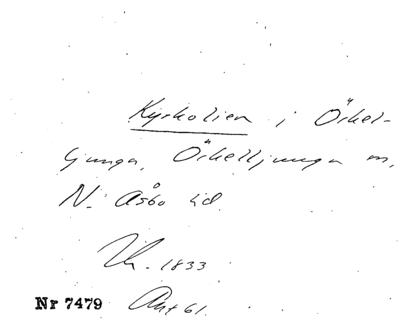 Kyrkolien i Örkel-
ljunga, Örkelljunga sn,
N. Åsbo hd.
Uk. 1833
Nr 7479 Akt 61.